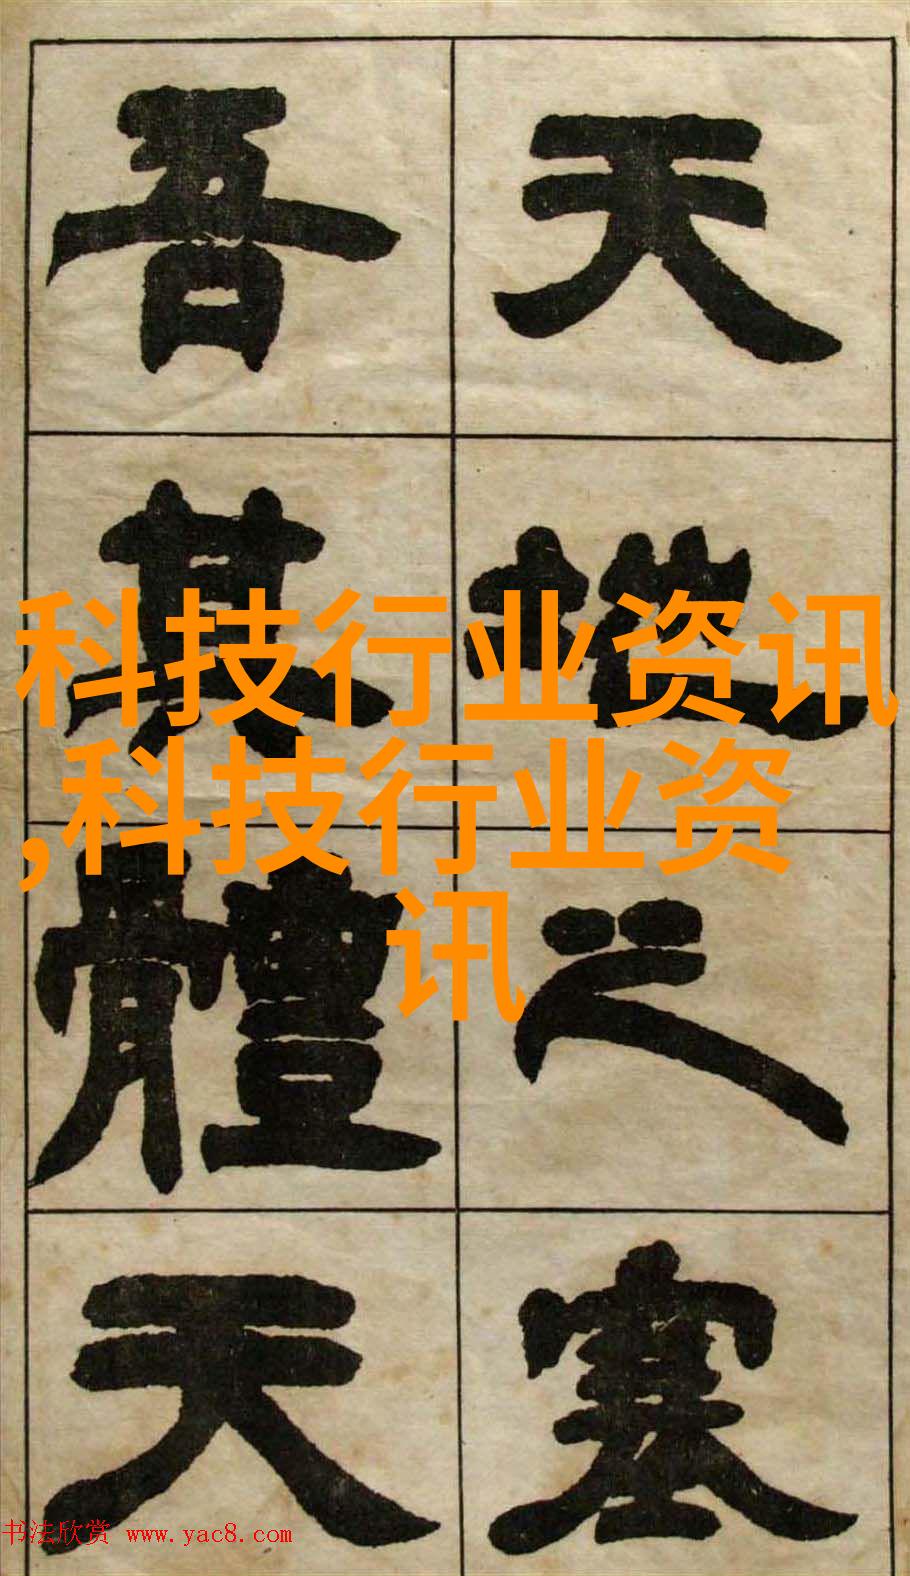 天地之塞
吾其體天
科技行业资讯
,科技行业资
讯
书法欣赏 www.yac8.com